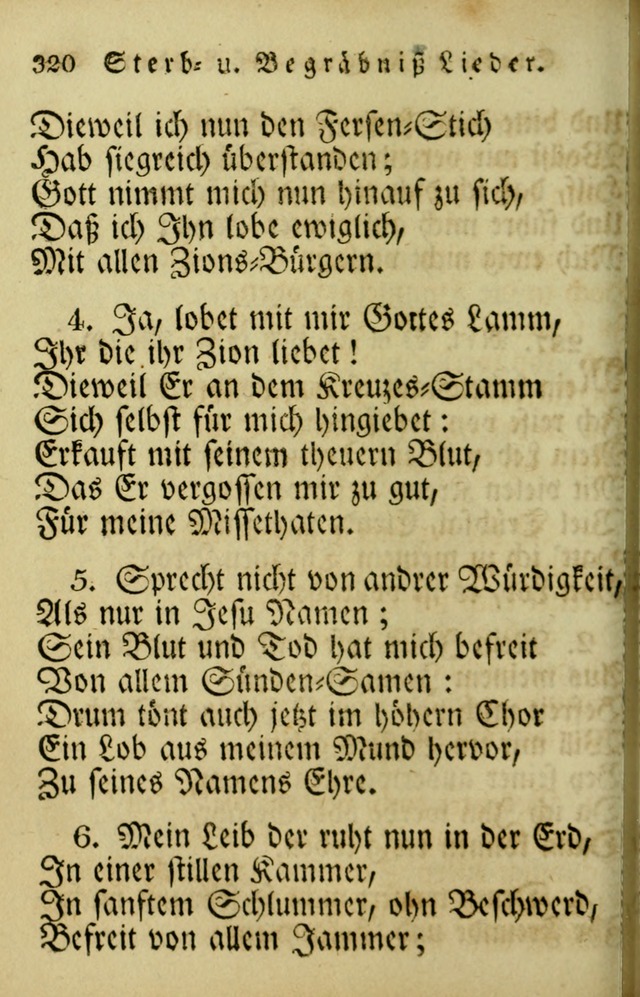 320 Sterb- u. Begräbniß Lieder.
Dieweil ich nun den Fersen-Stich
Hab siegreich überstanden;
Gott nimmt mich nun hinauf zu sich,
Daß ich Ihn lobe ewiglich,
Mit allen Zions-Bürgern.
4. Ja, lobet mit mir Gottes Lamm,
Ihr die ihr Zion liebet!
Dieweil Er an dem Kreuzes-Stamm
Sich selbst für mich hingiebet:
Erkauft mit seinem theuern Blut,
Das Er vergossen mir zu gut,
Für meine Missethaten.
5. Sprecht nicht von andrer Würdigkeit,
Als nur in Jesu Namen;
Sein Blut und Tod hat mich befreit
Von allem Sünden-Samen:
Drum tönt auch jetzt im höhern Chor
Ein Lob aus meinem Mund hervor,
Zu seines Namens Ehre.
6. Mein Leib der ruht nun in der Erd,
In einer stillen Kammer,
In sanftem Schlummer, ohn Beschwerd,
Befreit von allem Jammer;